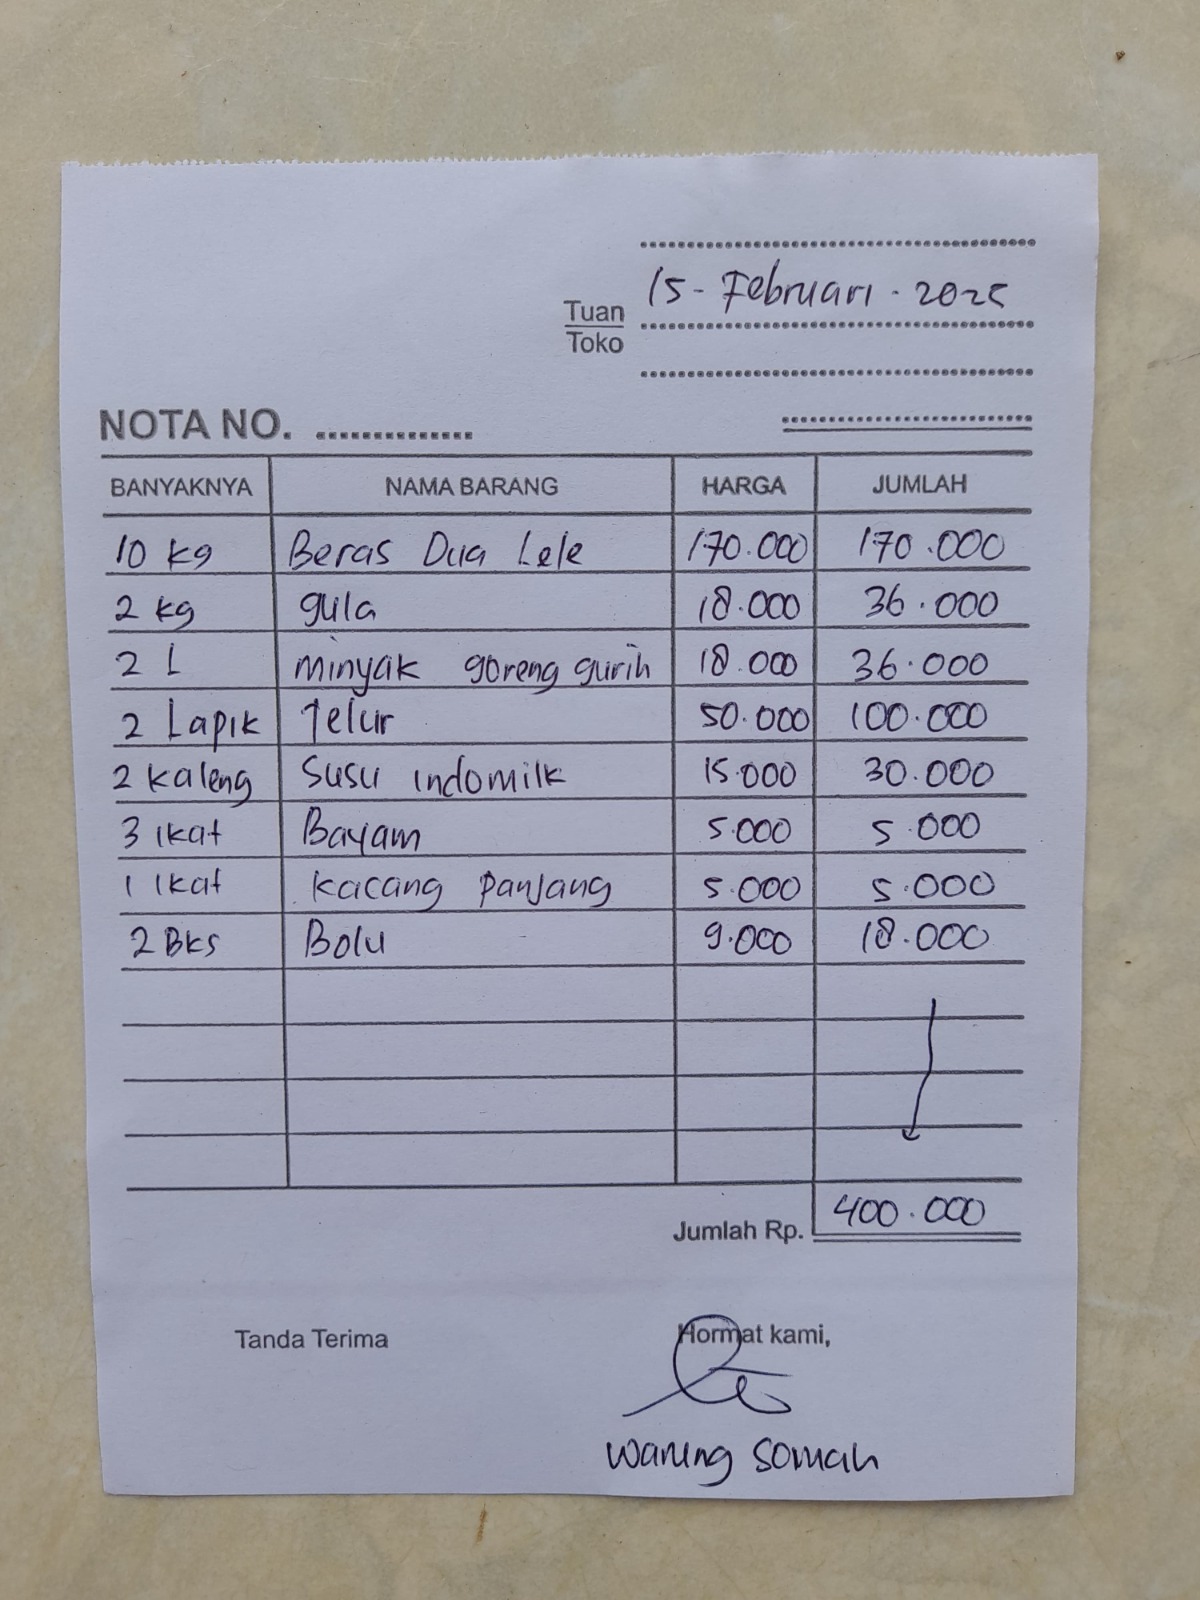 15 - Februari - 2025
Tuan
Toko
NOTA NO. ..............
BANYAKNYA NAMA BARANG HARGA JUMLAH
10 kg Beras Dua Lele 170.000 170.000
2 kg gula 18.000 36.000
2 L minyak goreng gurih 18.000 36.000
2 Lapik Telur 50.000 100.000
2 kaleng Susu indomilk 15.000 30.000
3 ikat Bayam 5.000 5.000
1 ikat kacang panjang 5.000 5.000
2 Bks Bolu 9.000 18.000
Jumlah Rp. 400.000
Tanda Terima Hormat kami,
warung